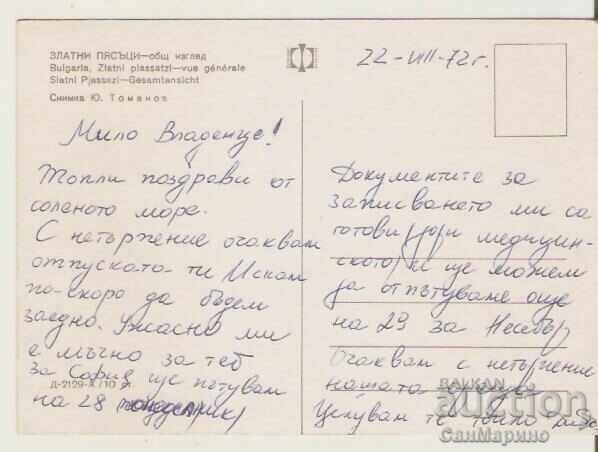 ЗЛАТНИ ПЯСЪЦИ—общ изглед
Bulgaria, Zlatni piassatzi—vue générale
Slatni Pjassazi—Gesamtansicht
Снимка Ю. Томанов
22-VIII-72 г.
Мило Владенце!
Топли поздрави от
соленото море.
С нетърпение очаквам
отпуската ти Искам
по-скоро да бъдем
заедно. Ужасно ми
е мъчно за теб
За София ще пътувам
на 28 (понеделник)
Д-2129-А/10 ст.
Документите за
записването ми са
готови, медицин-
ското, и ще можем
да отпътуваме още
на 29 за Несебър
Очаквам с нетърпение
нашата
Целувам те
BALKAN
auction
СанМарино